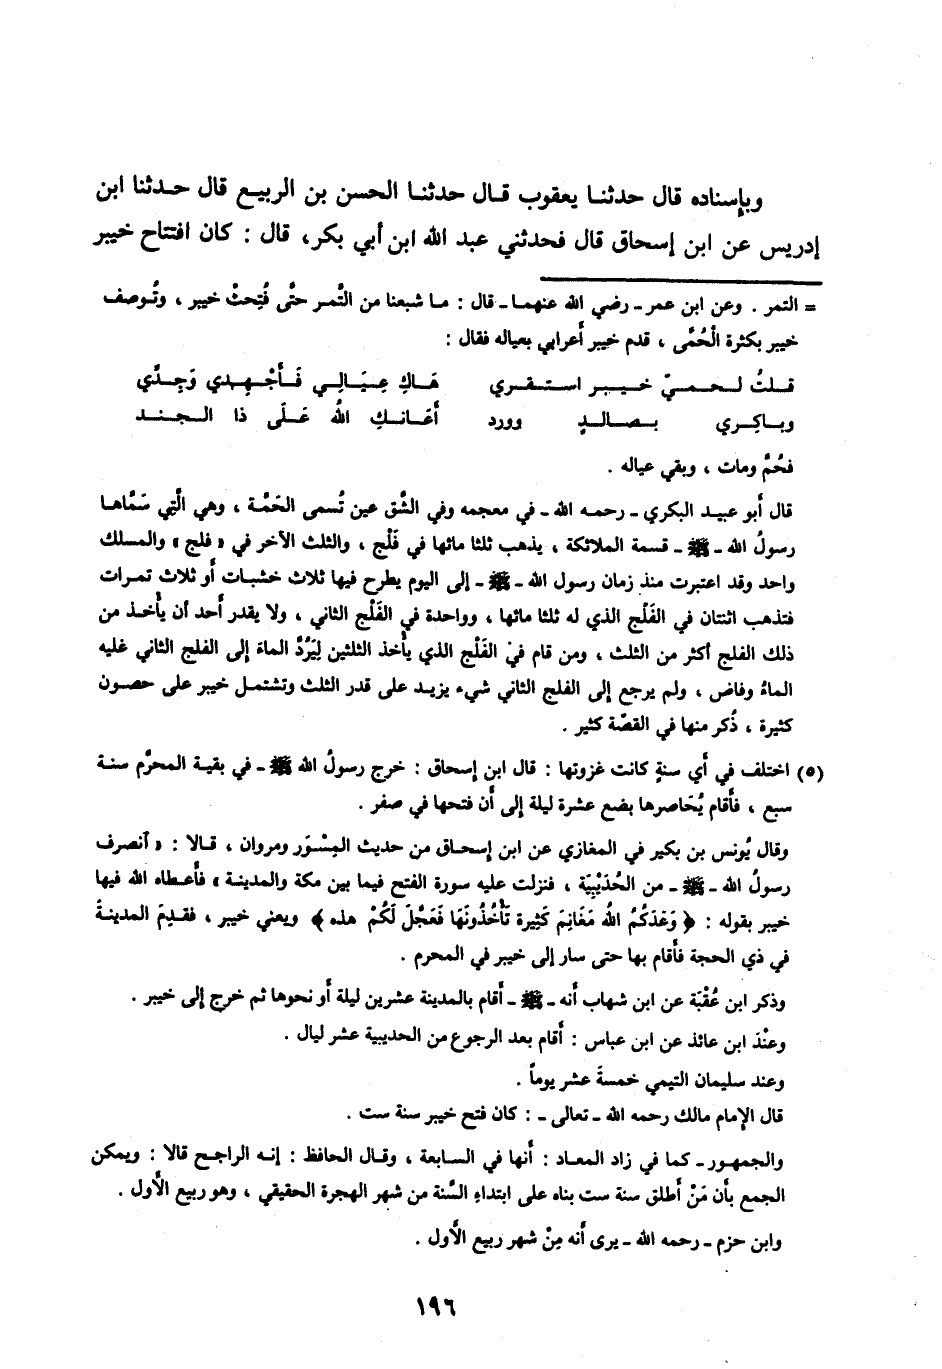 وبإسناده قال حدثنا يعقوب قال حدثنا الحسن بن الربيع قال حدثنا ابن
إدريس عن ابن إسحاق قال فحدثني عبد الله ابن أبي بكر، قال : كان افتتاح خيبر
= التمر . وعن ابن عمر ـ رضي الله عنهما ـ قال : ما شبعنا من التَّمر حتَّى فُتِحتْ خيبر ، وتُوصف
خيبر بكثرة الْحُمَّى ، قدم خيبر أعرابي بعياله فقال :
قلتُ لحميّ خيبر استقري هَاكِ عِيَالِي فَأَجْهِدي وَجِدِّي
وباكِري بصالبٍ وورد أعَانكِ اللهُ عَلَى ذا الجند
فحُمَّ ومات ، وبقي عياله .
قال أبو عبيد البكري ـ رحمه الله ـ في معجمه وفي الشَّق عين تُسمى الحَمَّة ، وهي الَّتِي سَمَّاها
رسولُ الله ـ ﷺ ـ قسمة الملائكة ، يذهب ثلثا مائها في فَلْج ، والثلث الآخر في « فلج » والمسلك
واحد وقد اعتبرت منذ زمان رسول الله ـ ﷺ ـ إلى اليوم يطرح فيها ثلاث خشبات أو ثلاث تمرات
فتذهب اثنتان في الفَلْج الذي له ثلثا مائها ، وواحدة في الفَلْج الثاني ، ولا يقدر أحد أن يأخذ من
ذلك الفلج أكثر من الثلث ، ومن قام فيْ الفَلْج الذي يأخذ الثلثين لِيَرُدَّ الماءَ إلى الفلج الثاني غليه
الماءُ وفاض ، ولم يرجع إلى الفلج الثاني شيء يزيد على قدر الثلث وتشتمل خيبر على حصون
كثيرة ، ذُكر منها في القصّة كثير .
(٥) اختلف في أي سنةٍ كانت غزوتها : قال ابن إسحاق : خرج رسولُ الله ﷺ ـ في بقية المحرَّم سنة
سبع ، فأقام يُحَاصرها بضع عشرة ليلة إلى أن فتحها في صفر .
وقال يُونس بن بكير في المغازي عن ابن إسحاق من حديث المِسْوَر ومروان ، قالا : « آنصرف
رسولُ الله ـ ﷺ ـ من الحُدَيْبِيَة ، فنزلت عليه سورة الفتح فيما بين مكة والمدينة » فأعطاه الله فيها
خيبر بقوله : ﴿ وَعَدَكُمُ اللهُ مَغَانِمَ كَثِيرة تَأْخُذُونَهَا فَعَجَّلَ لَكُمْ هذه ﴾ ويعني خيبر ، فقدِمَ المدينةً
في ذي الحجة فأقام بها حتى سار إلى خيبر في المحرم .
وذكر ابن عُقْبَة عن ابن شهاب أنه ـ ﷺ ـ أقام بالمدينة عشرين ليلة أو نحوها ثم خرج إلى خيبر .
وعنْدَ ابن عائذ عن ابن عباس : أقام بعد الرجوع من الحديبية عشر ليال .
وعند سليمان التيمي خمسةَ عشر يوماً .
قال الإمام مالك رحمه الله ـ تعالى ـ : كان فتح خيبر سنة ست .
والجمهور ـ كما في زاد المعاد : أنها في السابعة ، وقال الحافظ : إنه الراجح قالا : ويمكن
الجمع بأن مَنْ أطلق سنة ست بناه على ابتداءِ السَّنة من شهر الهجرة الحقيقي ، وهو ربيع الأول .
وابن حزم ـ رحمه الله ـ يرى أنه مِنْ شهر ربيع الأول .
١٩٦